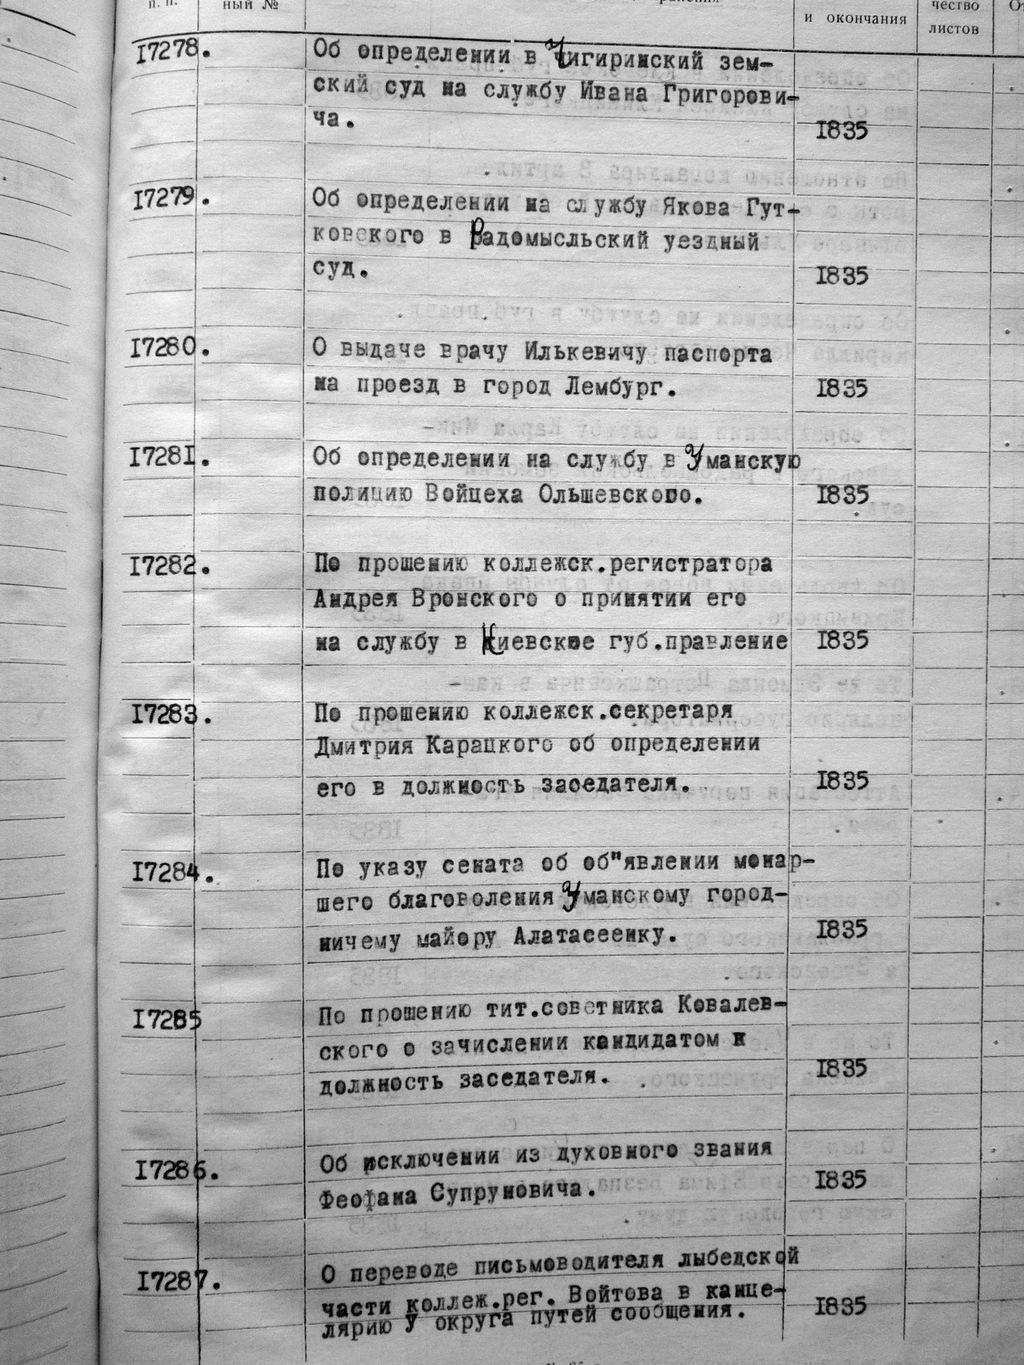 п. п.
ный №
и окончания
чество
листов
17278.
Об определении в Чигиринский зем-
ский суд на службу Ивана Григорови-
ча.
1835
17279.
Об определении на службу Якова Гут-
ковского в Радомысльский уездный
суд.
1835
17280.
О выдаче врачу Илькевичу паспорта
на проезд в город Лембург.
1835
17281.
Об определении на службу в Уманскую
полицию Войцеха Ольшевского.
1835
17282.
По прошению коллежск.регистратора
Андрея Вронского о принятии его
на службу в Киевское губ.правление
1835
17283.
По прошению коллежск.секретаря
Дмитрия Карацкого об определении
его в должность заседателя.
1835
17284.
По указу сената об об"явлении монар-
шего благоволения Уманскому город-
ничему майору Алатасеенку.
1835
17285
По прошению тит.советника Ковалев-
ского о зачислении кандидатом н
должность заседателя.
1835
17286.
Об исключении из духовного звания
Феофана Супруновича.
1835
17287.
О переводе письмоводителя лыбедской
части коллеж.рег. Войтова в канце-
лярию У округа путей сообщения.
1835